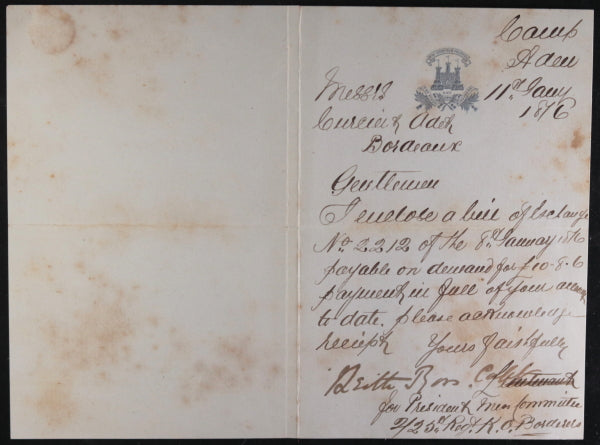 Camp
Aden
11th Jany
1876
Messrs
Bordeaux
Gentlemen
I enclose a bill of Exchange
No 2212 of the 8th January 1876
payable on demand for £10-8-6
payment in full of your account
to date. please acknowledge
receipt Yours faithfully
Capt
for President Mess Committee
2/25th Regt. K. O. Borderers